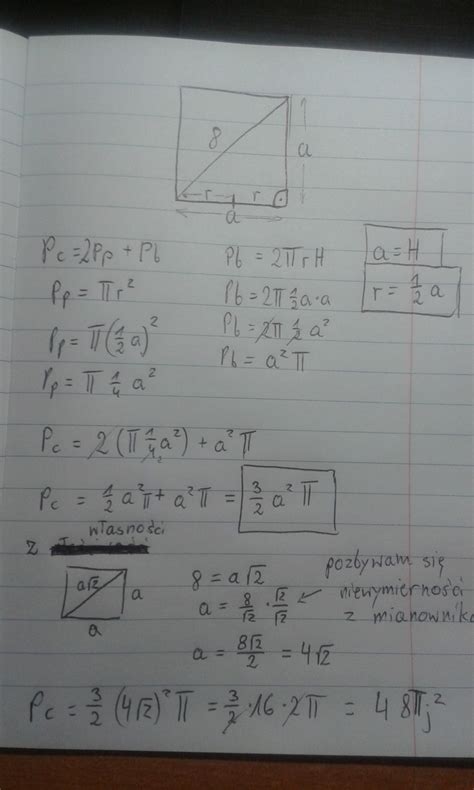 8
a
r r
a
Pc = 2Pp + Pb Pb = 2πrH a = H
Pp = πr² Pb = 2π ½a·a r = ½a
Pp = π(½a)² Pb = 2π ½ a²
Pp = π ¼ a² Pb = a²π
Pc = 2(π ¼ a²) + a²π
Pc = ½a²π + a²π = 3/2 a² π
z własności
a√2 a
a
8 = a√2
a = 8/√2 · √2/√2
pozbywam się
niewymierności
z mianownika
a = 8√2/2 = 4√2
Pc = 3/2 (4√2)² π = 3/2 · 16 · 2π = 48π j²